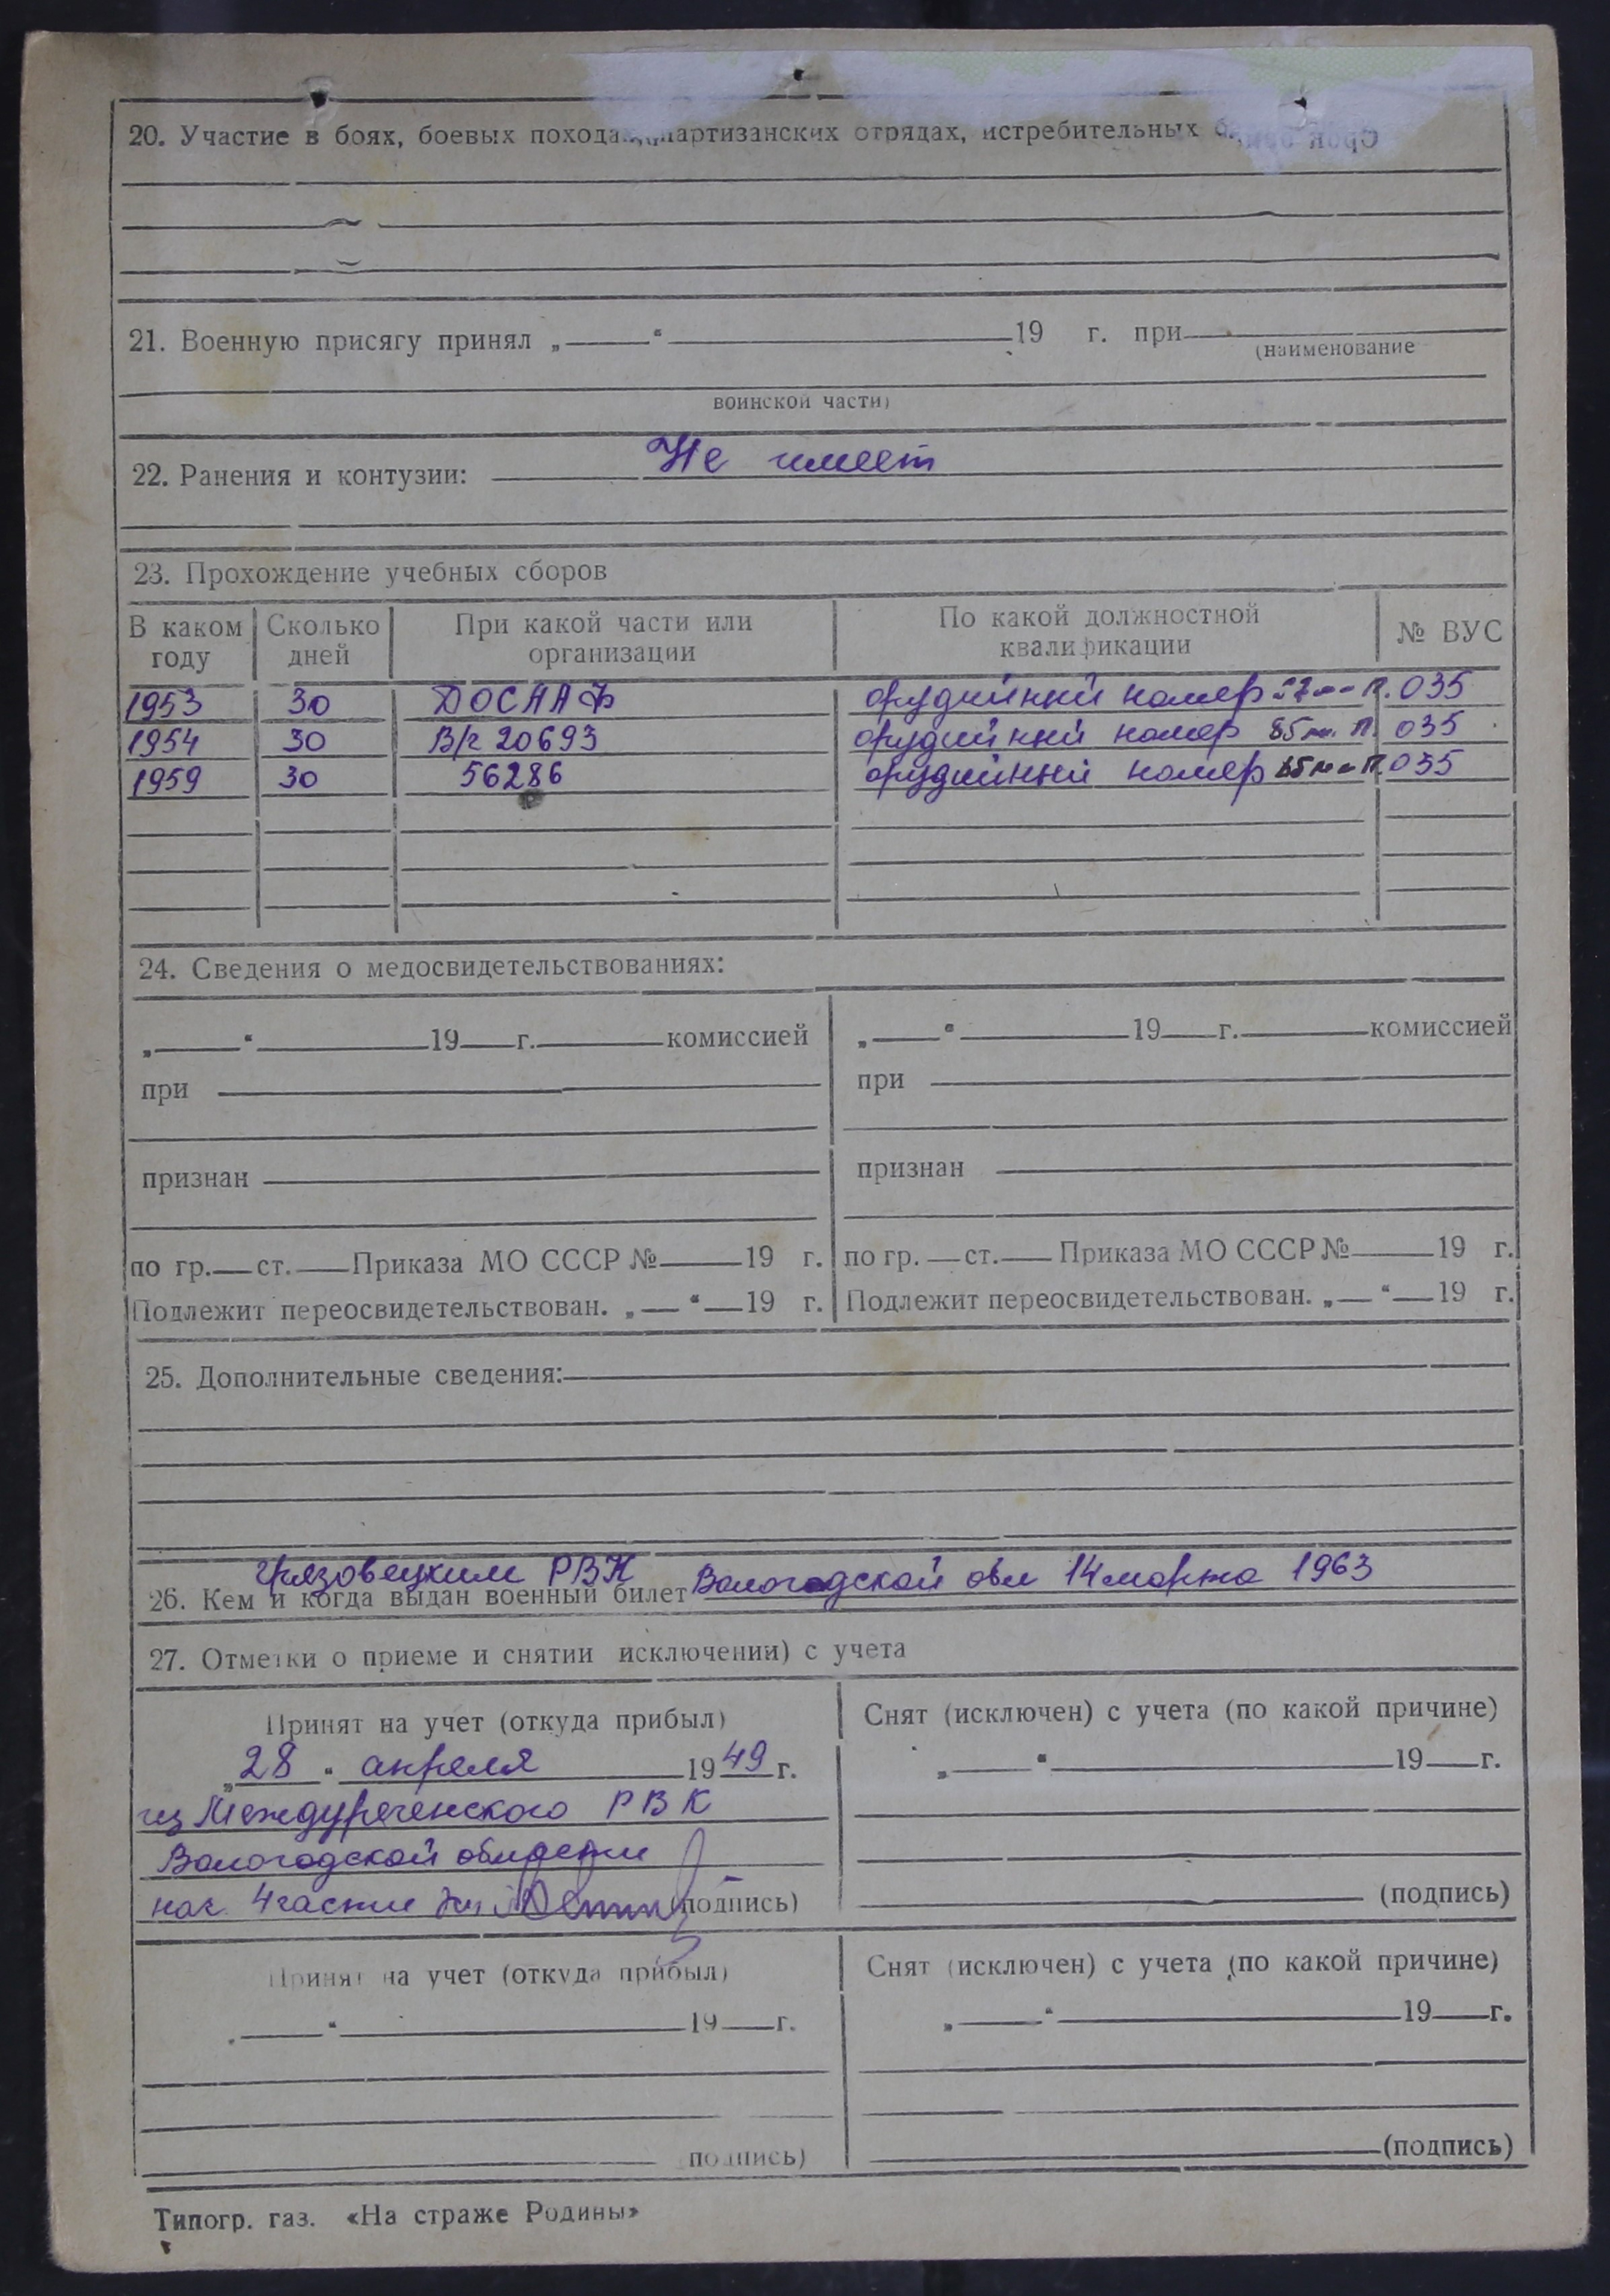 20. Участие в боях, боевых походах, партизанских отрядах, истребительных
21. Военную присягу принял „ “ 19 г. при
(наименование
воинской части)
22. Ранения и контузии: Не имеет
23. Прохождение учебных сборов
В каком году Сколько дней При какой части или организации По какой должностной квалификации № ВУС
1953 30 ДОСААФ орудийный номер П. 035
1954 30 В/ч 20693 орудийный номер 85 мм. П. 035
1959 30 56286 орудийный номер 85 мм П. 035
24. Сведения о медосвидетельствованиях:
„ “ 19 г. комиссией „ “ 19 г. комиссией
при при
признан признан
по гр. ст. Приказа МО СССР № 19 г. по гр. ст. Приказа МО СССР № 19 г.
Подлежит переосвидетельствован. „ “ 19 г. Подлежит переосвидетельствован. „ “ 19 г.
25. Дополнительные сведения:
Грязовецким РВК
26. Кем и когда выдан военный билет Вологодской обл 14 марта 1963
27. Отметки о приеме и снятии исключении) с учета
Принят на учет (откуда прибыл) Снят (исключен) с учета (по какой причине)
„28“ апреля 1949 г. „ “ 19 г.
из Междуреченского РВК
Вологодской области
нач. 4 части (подпись) (подпись)
Принят на учет (откуда прибыл) Снят (исключен) с учета (по какой причине)
„ “ 19 г. „ “ 19 г.
подпись) (подпись)
Типогр. газ. «На страже Родины»